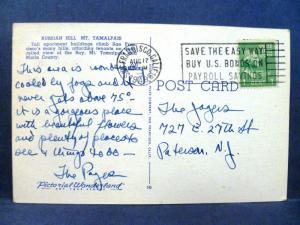 RUSSIAN HILL MT. TAMALPAIS
Tall apartment buildings climb San Fran-
cisco's many hills, affording tenants
of the Bay, Mt. Tamalpais
Marin County.
This area is wonder
cooled by fogs and it
never gets above 75°
It is a gorgeous place
with beautiful flowers
and plenty of places to
see & things to do—
The Pages
Pictorial Wonderland
SAN FRANCISCO, CALIF.
AUG 17
SAVE THE EASY WAY
BUY U.S. BONDS ON
PAYROLL SAVINGS
POST CARD
The Jagers
727 E. 27th St
Paterson, N.J.